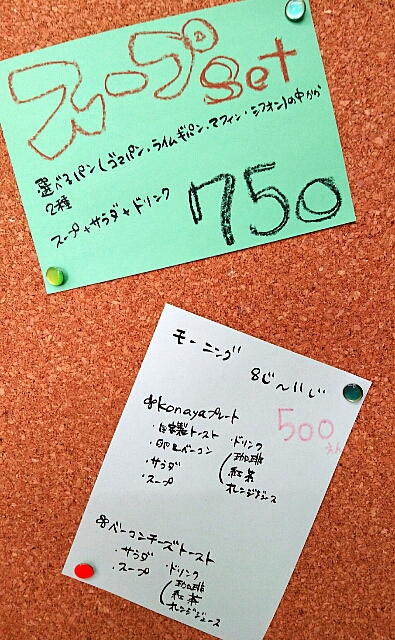 スープset
選べるパン(ゴマパン・ライムギパン・マフィン・シフォン)の中から
2種
スープ+サラダ+ドリンク
750
モーニング
8じ〜11じ
konayaプレート
500えん
・自家製トースト
・卵&ベーコン
・サラダ
・スープ
・ドリンク
(珈琲
紅茶
オレンジジュース
ベーコンチーズトースト
・サラダ
・スープ
・ドリンク
(珈琲
紅茶
オレンジジュース